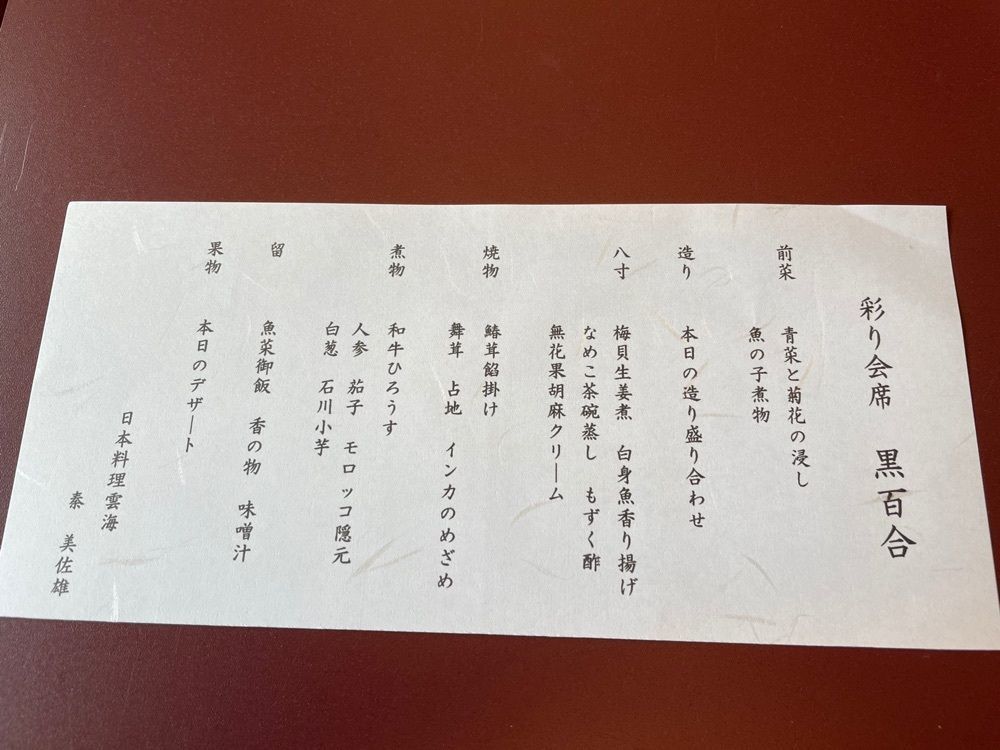 彩り会席　黒百合
前菜　青菜と菊花の浸し
魚の子煮物
造り　本日の造り盛り合わせ
八寸　梅貝生姜煮　白身魚香り揚げ
なめこ茶碗蒸し　もずく酢
無花果胡麻クリーム
焼物　鰆茸餡掛け
舞茸　占地　インカのめざめ
煮物　和牛ひろうす
人参　茄子　モロッコ隠元
白葱　石川小芋
留　魚菜御飯　香の物　味噌汁
果物　本日のデザート
日本料理雲海
秦　美佐雄